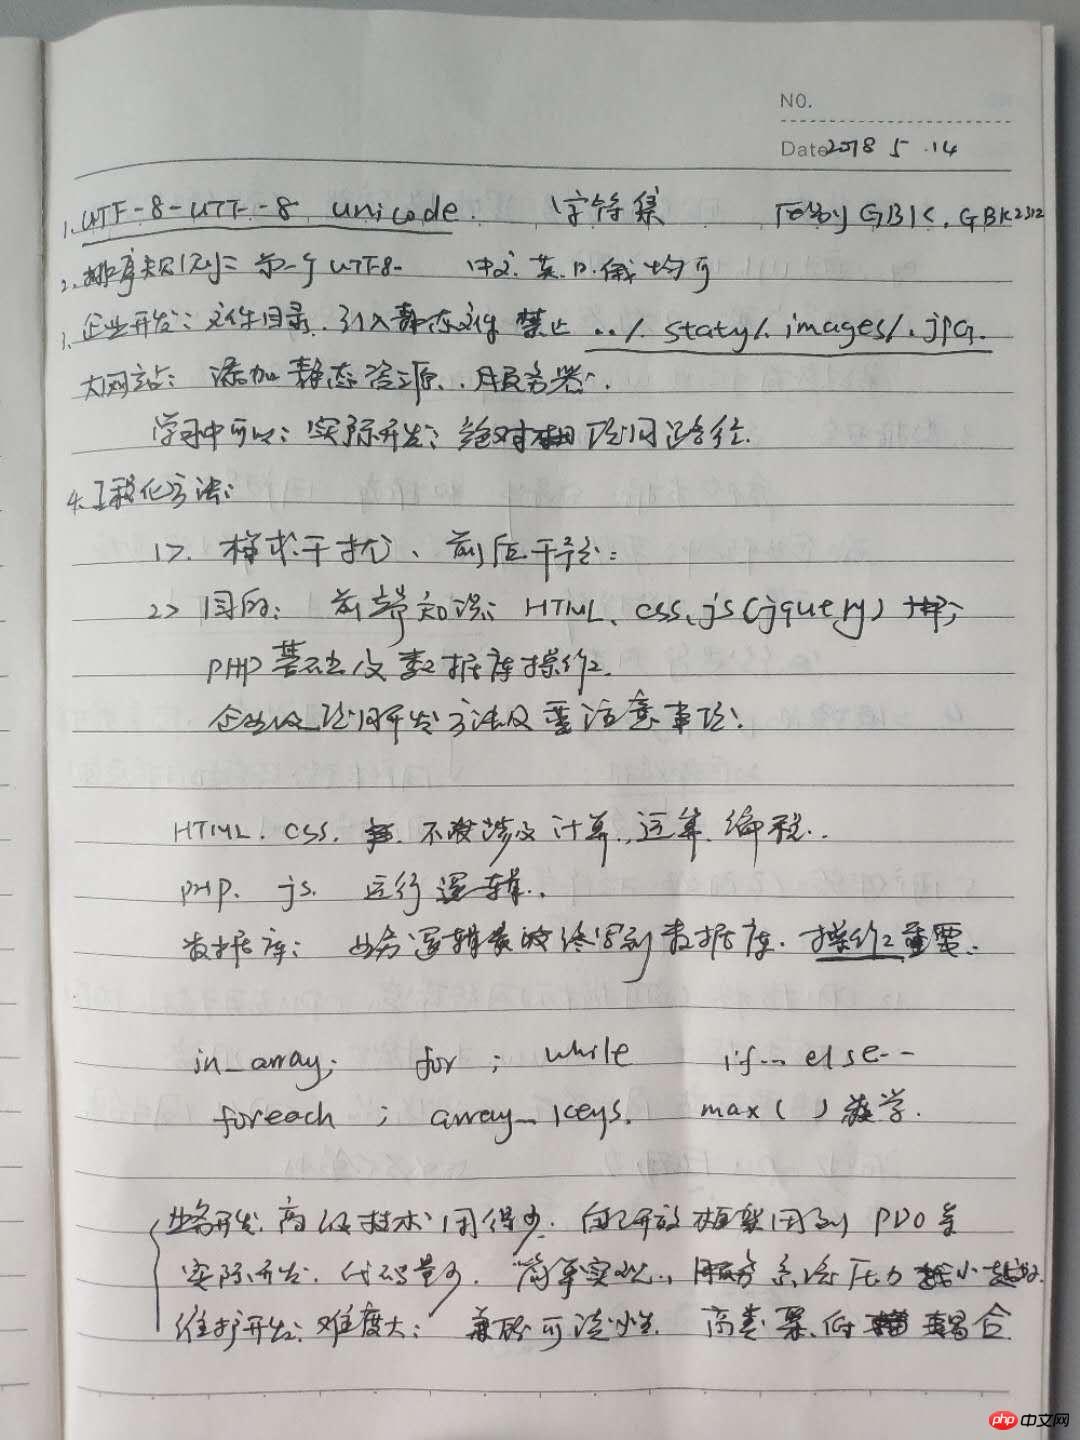 NO.
Date 2018 5 .14
1. UTF-8-UTF-8 unicode. 字符集 GBK. GBK2312
2. 排序规则: 第一个 UTF8- 中文. 英. 日. 俄 均可
3. 企业开发: 文件目录. 引入静态文件 禁止 ../. staty/. images/. jpg.
大网站: 添加静态资源.. 服务器.
学习中可以; 实际开发; 绝对项目路径.
4. 工程化方法:
1>. 排求干扰、前后干净:
2> 目的: 前端知识: HTML、css、js(jquery)
PHP基础及数据库操作.
企业级项目开发方法及要注意事项.
HTML. CSS. 不涉及计算, 运算. 编程..
PHP. js. 运行逻辑..
数据库: 业务逻辑最终写到数据库. 操作重要.
in_array; for ; while if... else--
foreach ; array_keys. max( ) 数学.
业务开发. 高级技术用得少. 自己研发框架用到 PDO等
实际开发. 代码量少. 简单实现.. 服务系统压力越小越好.
维护开发: 难度大; 兼顾可读性. 高类聚. 低耦合.
php 中文网